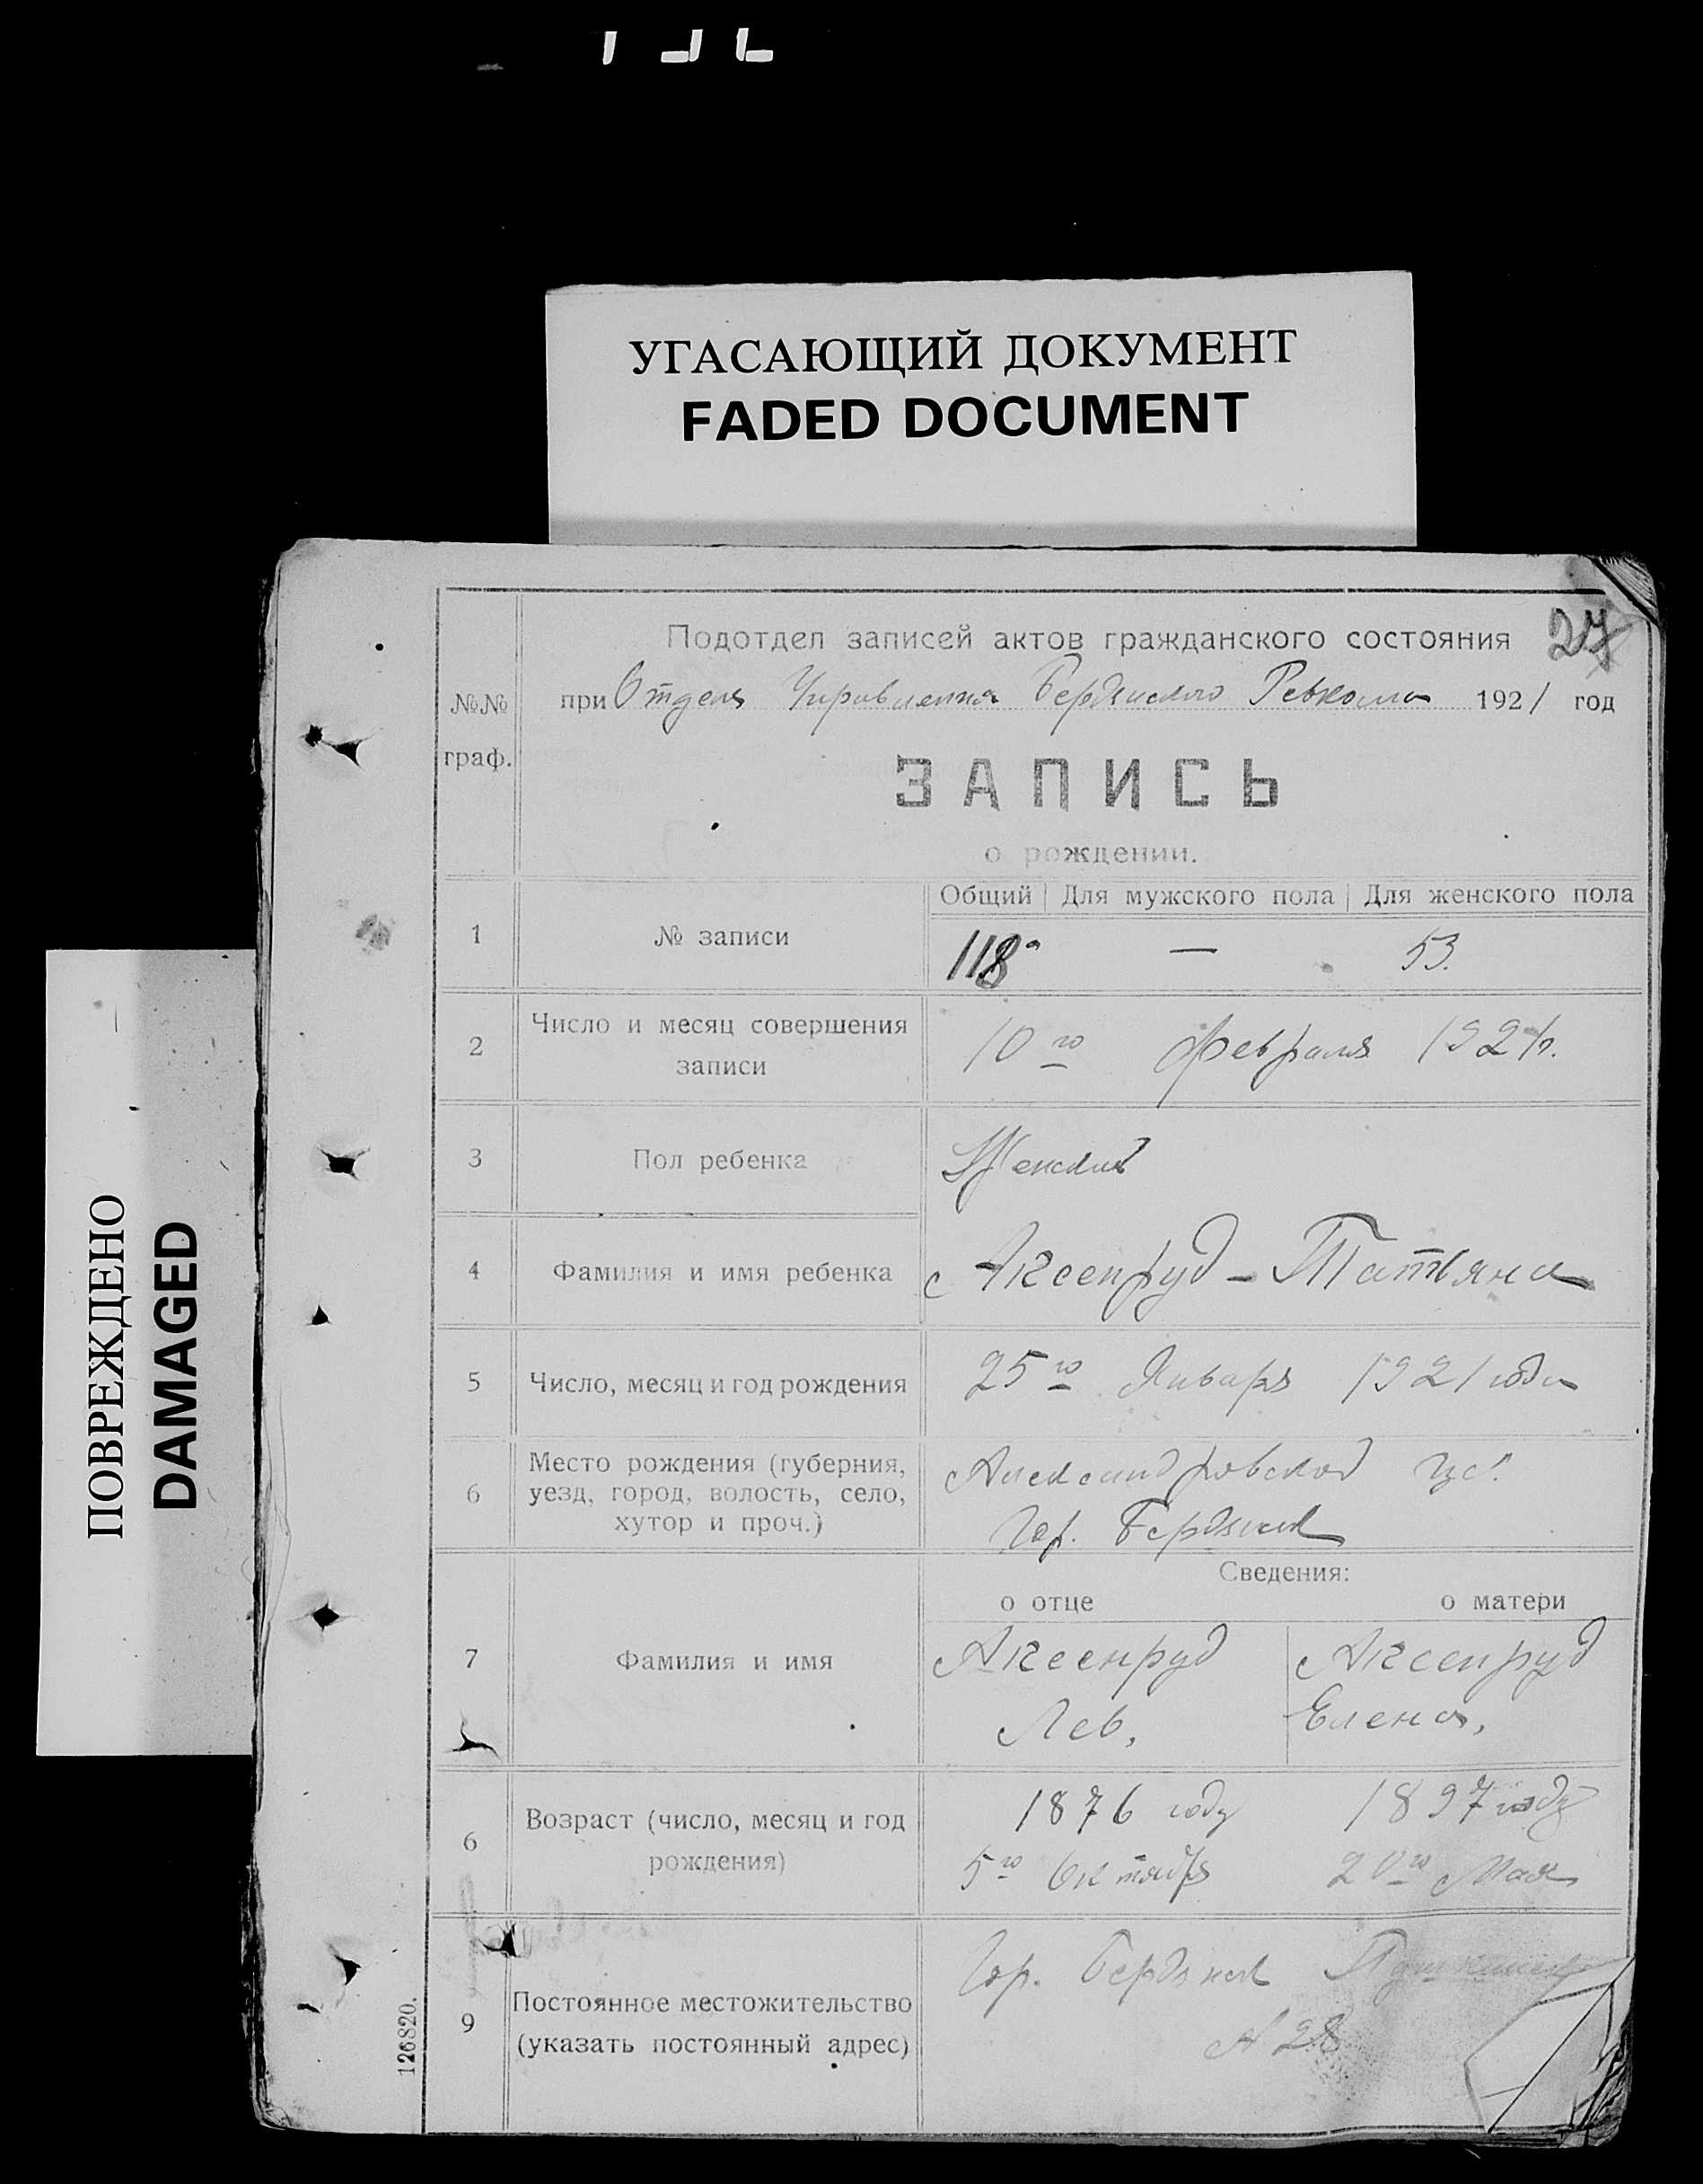 УГАСАЮЩИЙ ДОКУМЕНТ
FADED DOCUMENT
ПОВРЕЖДЕНО
DAMAGED
27
Подотдел записей актов гражданского состояния
при Отделе Управления Бердянского Ревкома 1921 год
№№
граф.
ЗАПИСЬ
о рождении.
Общий Для мужского пола Для женского пола
1 № записи 118 — 53.
2 Число и месяц совершения
записи
10го Февраля 1921г.
3 Пол ребенка Женский
4 Фамилия и имя ребенка Аксенруд - Татьяна
5 Число, месяц и год рождения 25го Января 1921 года
6 Место рождения (губерния,
уезд, город, волость, село,
хутор и проч.)
Александровской
Гор. Бердянск
Сведения:
о отце о матери
7 Фамилия и имя
Аксенруд Аксенруд
Лев, Елена,
6 Возраст (число, месяц и год
рождения)
1876 году 1897 году
5го Октября 20го Мая
9 Постоянное местожительство
(указать постоянный адрес)
Гор. Бердянск
№ 28
126820.